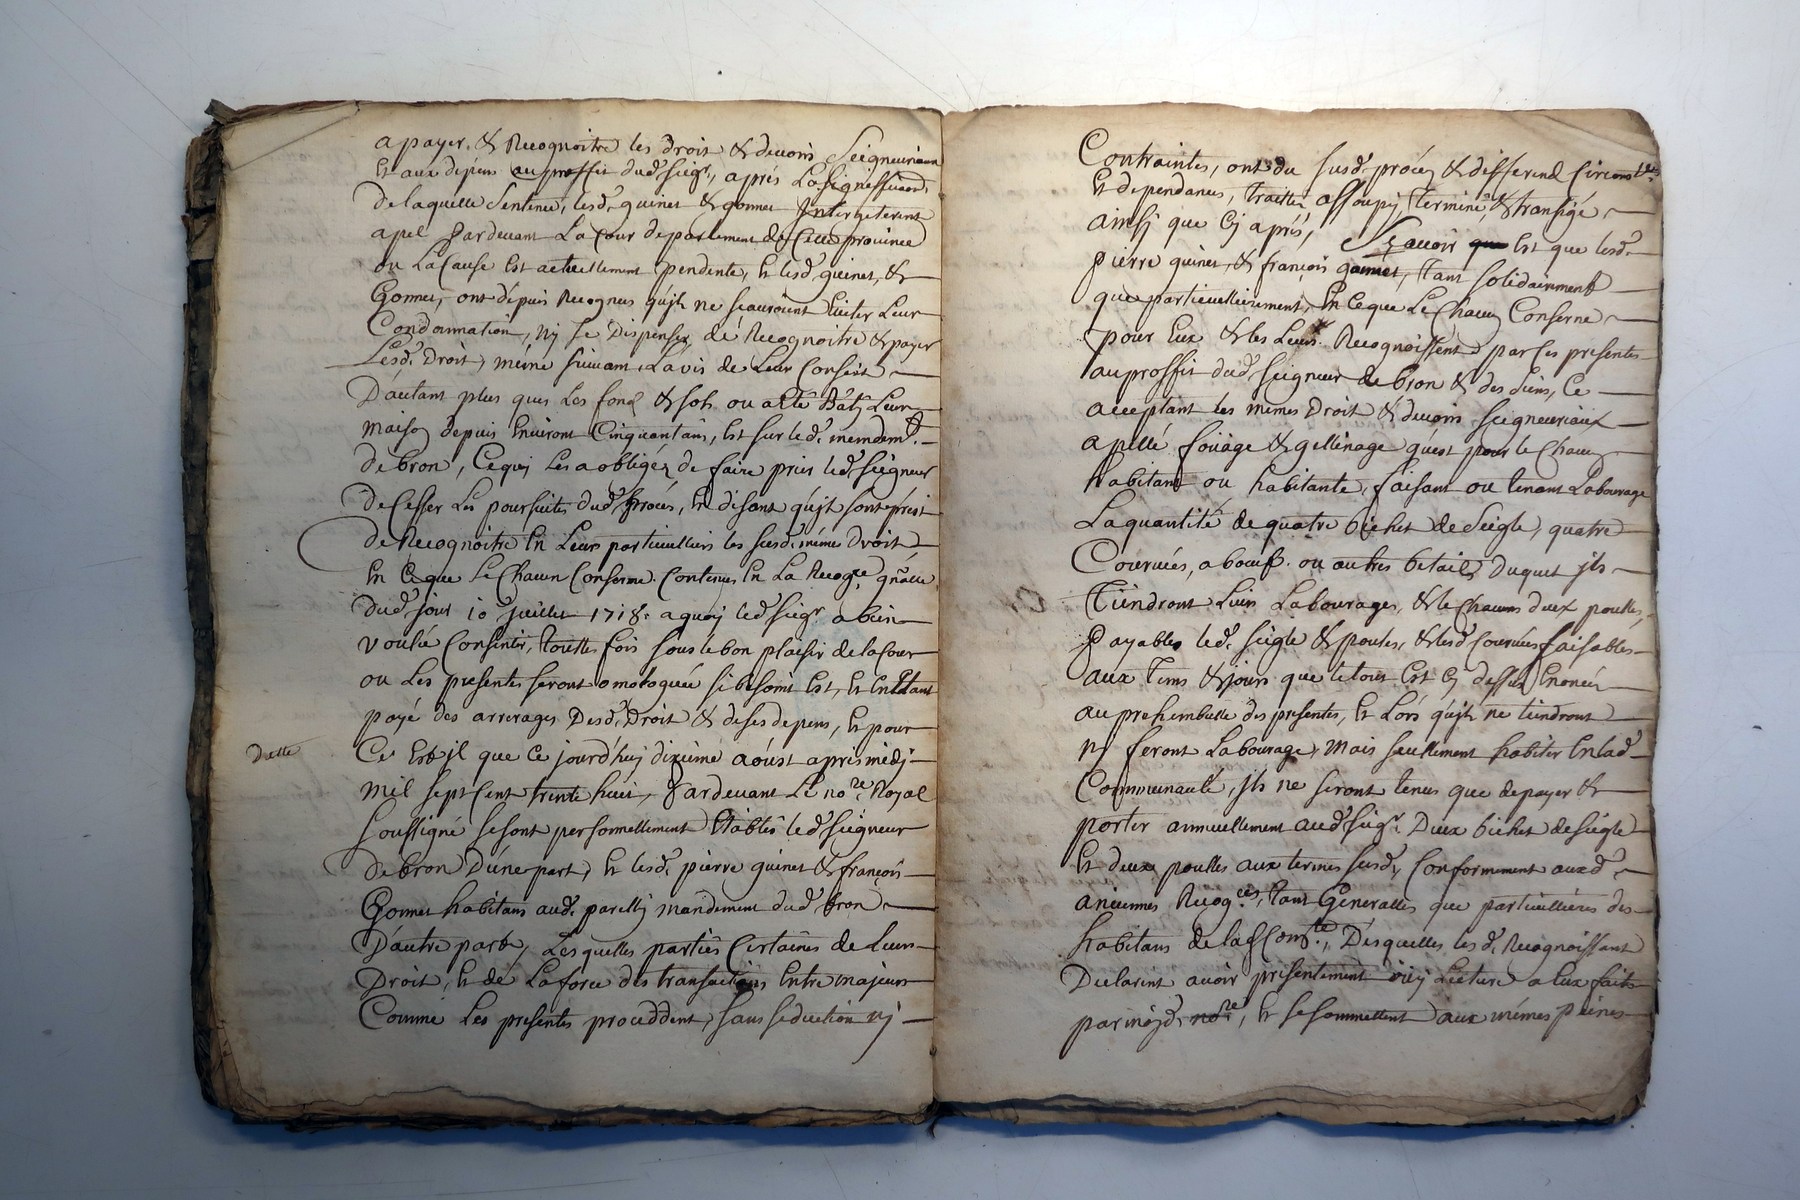 a payer, & Recognoitre les droit & devoirs Seigneuriaux
Et aux depens au proffit dud. seigr, aprés La signiffication
De laquelle Sentence, lesd. guinet & gonnet Interjeterent
apel Pardevant La Cour de parlement de Cette province
ou La Cause Est actuellement pendente, Et lesd. guinet, &
Gonnet, ont dépuis Recognus qu'jls ne scauroient Eviter Leur
Condamnation, Ny se Dispenser de Recognoitre & payer
Lesd. Droit, méme suivant L'avis de Leur Conseit
D'autant plus que Les fond & sols ou a été Bâty Leur
Maison depuis Environt Cinquantans, Est sur led. mendemt
de bron, Ce quj Les a obligéz de faire prier led. Seigneur
de Cesser Les poursuites dud. Procés, En disant qu'jls sont prést
De Recognoitre En Leurs particulliers les susd. méme droit
En Ce que Le Chacun Conserne Contenus En La Recogce gñalle
Dud. jour 10 juillet 1718: a quoy led. Seigr a bien
voulu Consentir, touttes fois sous le bon plaisir de la Cour
ou Les presentes seront omologuée si besoint Est, Et En Etant
payé des arrerages Desd. Droit & de ses depens, Et pour
Datte
Ce Est jl que Ce jourd'huy dixiéme aóust aprés médj
Mil Sept Cent trente huit, Pardevant Le nore Royal
Soussigné se sont personnellement Etablis led. Seigneur
de bron D'une part, Et lesd. pierre guinet & françois
Gonnet habitans aud. parelly mandement dud. bron
D'autre part, Lesquelles partiës Certaines de Leurs
Droit, Et de La force des transactions Entre majeurs
Comme Les presentes proceddent, sans seduction nj
Contraintes, ont du susd. procez & differend Circonstces
Et dependances, traitté assoupy Terminé & transigé
ainsj que Cj aprés, Scavoir que Est que lesd.
pierre guinet, & françois gonnet, Tant solidairement
que particullierement, En Ce que Le Chacun Conserne
pour Eux & les Leurs Recognoissent par Ces presentes
au proffit dud. seigneur de bron & des siens, Ce
acceptant les mémes Droit & devoirs seigneuriaux
apellé fouage & gellinage qu'est pour le Chacun
habitant ou habitante, faisant ou tenant Labourage
La quantité de quatre bichet de Seigle, quatre
Courvées, a boeuf ou autres betails duquel jls
Tiendront Leurs Labourages, & le Chacun deux poulles,
Payables led. seigle & poules, & lesd. Courvées faisables
aux Tems & jours que le tout Est Cj dessus Enoncéz
au prehembulle des presentes, Et Lors qu'jls ne tiendront
ny feront Labourage, Mais seullement habiter En lad.
Communauté, jls ne seront tenus que de payer &
porter annuellement aud. seigr. Deux bichet de seigle
Et deux poulles aux termes susd., Conformement auxd.
anciennes Recogces, tant Generalles que particullieres des
habitans de lad. Comte, Desquelles lesd. Recognoissant
Declarent avoir presentement ouy Lecture a Eux faite
par moyd. nore, Et se sommettent aux mémes peines